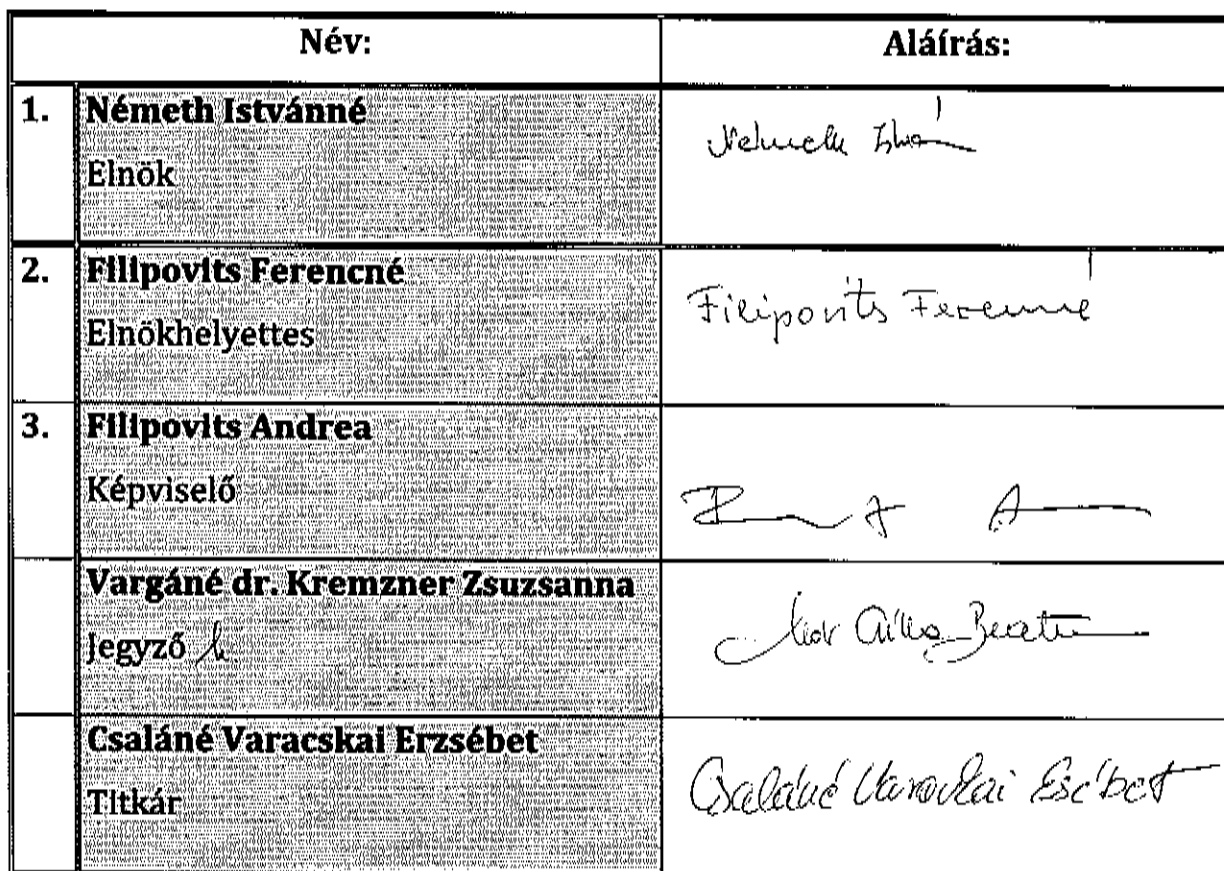 Név: Aláírás:
1. Németh Istvánné
Elnök
Németh
2. Filipovits Ferencné
Elnökhelyettes
Filipovits Ferencné
3. Filipovits Andrea
Képviselő
Vargáné dr. Kremzner Zsuzsanna
Jegyző
Csilla Beata
Csaláné Varacskai Erzsébet
Titkár
Csaláné Varacskai Erzsébet